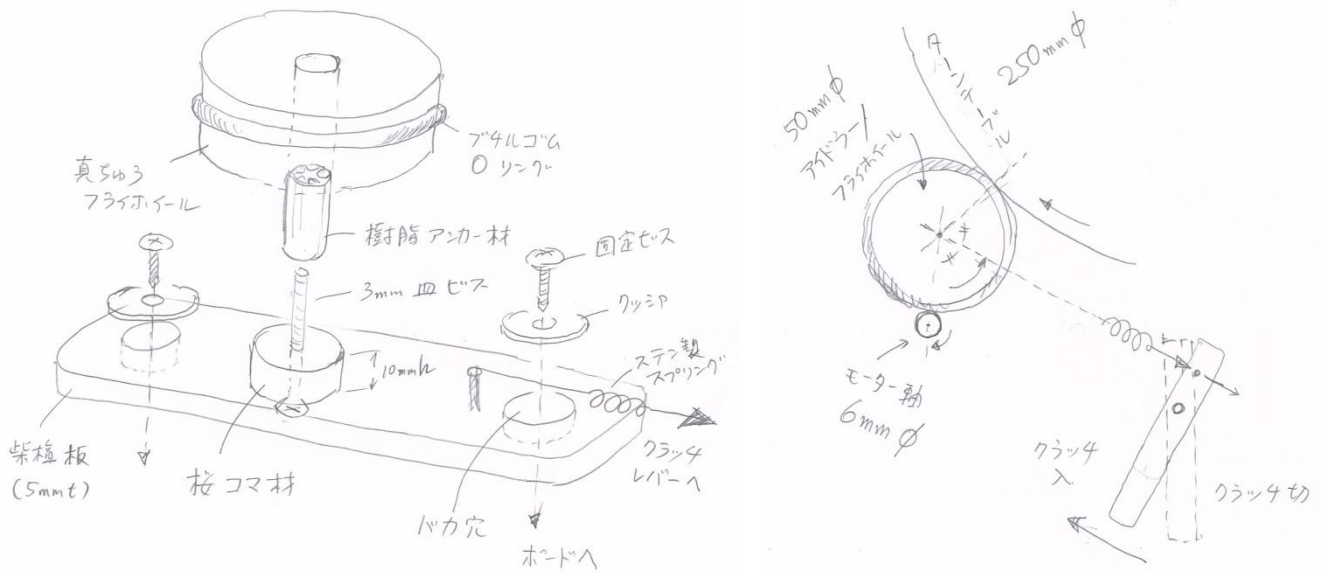 ブチルゴム
Oリング
真ちゅう
フライホイール
樹脂アンカー材
3mm皿ビス
固定ビス
ワッシャ
10mmh
ステン製
スプリング
クラッチ
レバーへ
紫檀板
(5mmt)
桜コマ材
バカ穴
ボードへ
ターンテーブル
250mmφ
50mmφ
アイドラー/
フライホイール
モーター軸
6mmφ
クラッチ
入
クラッチ切